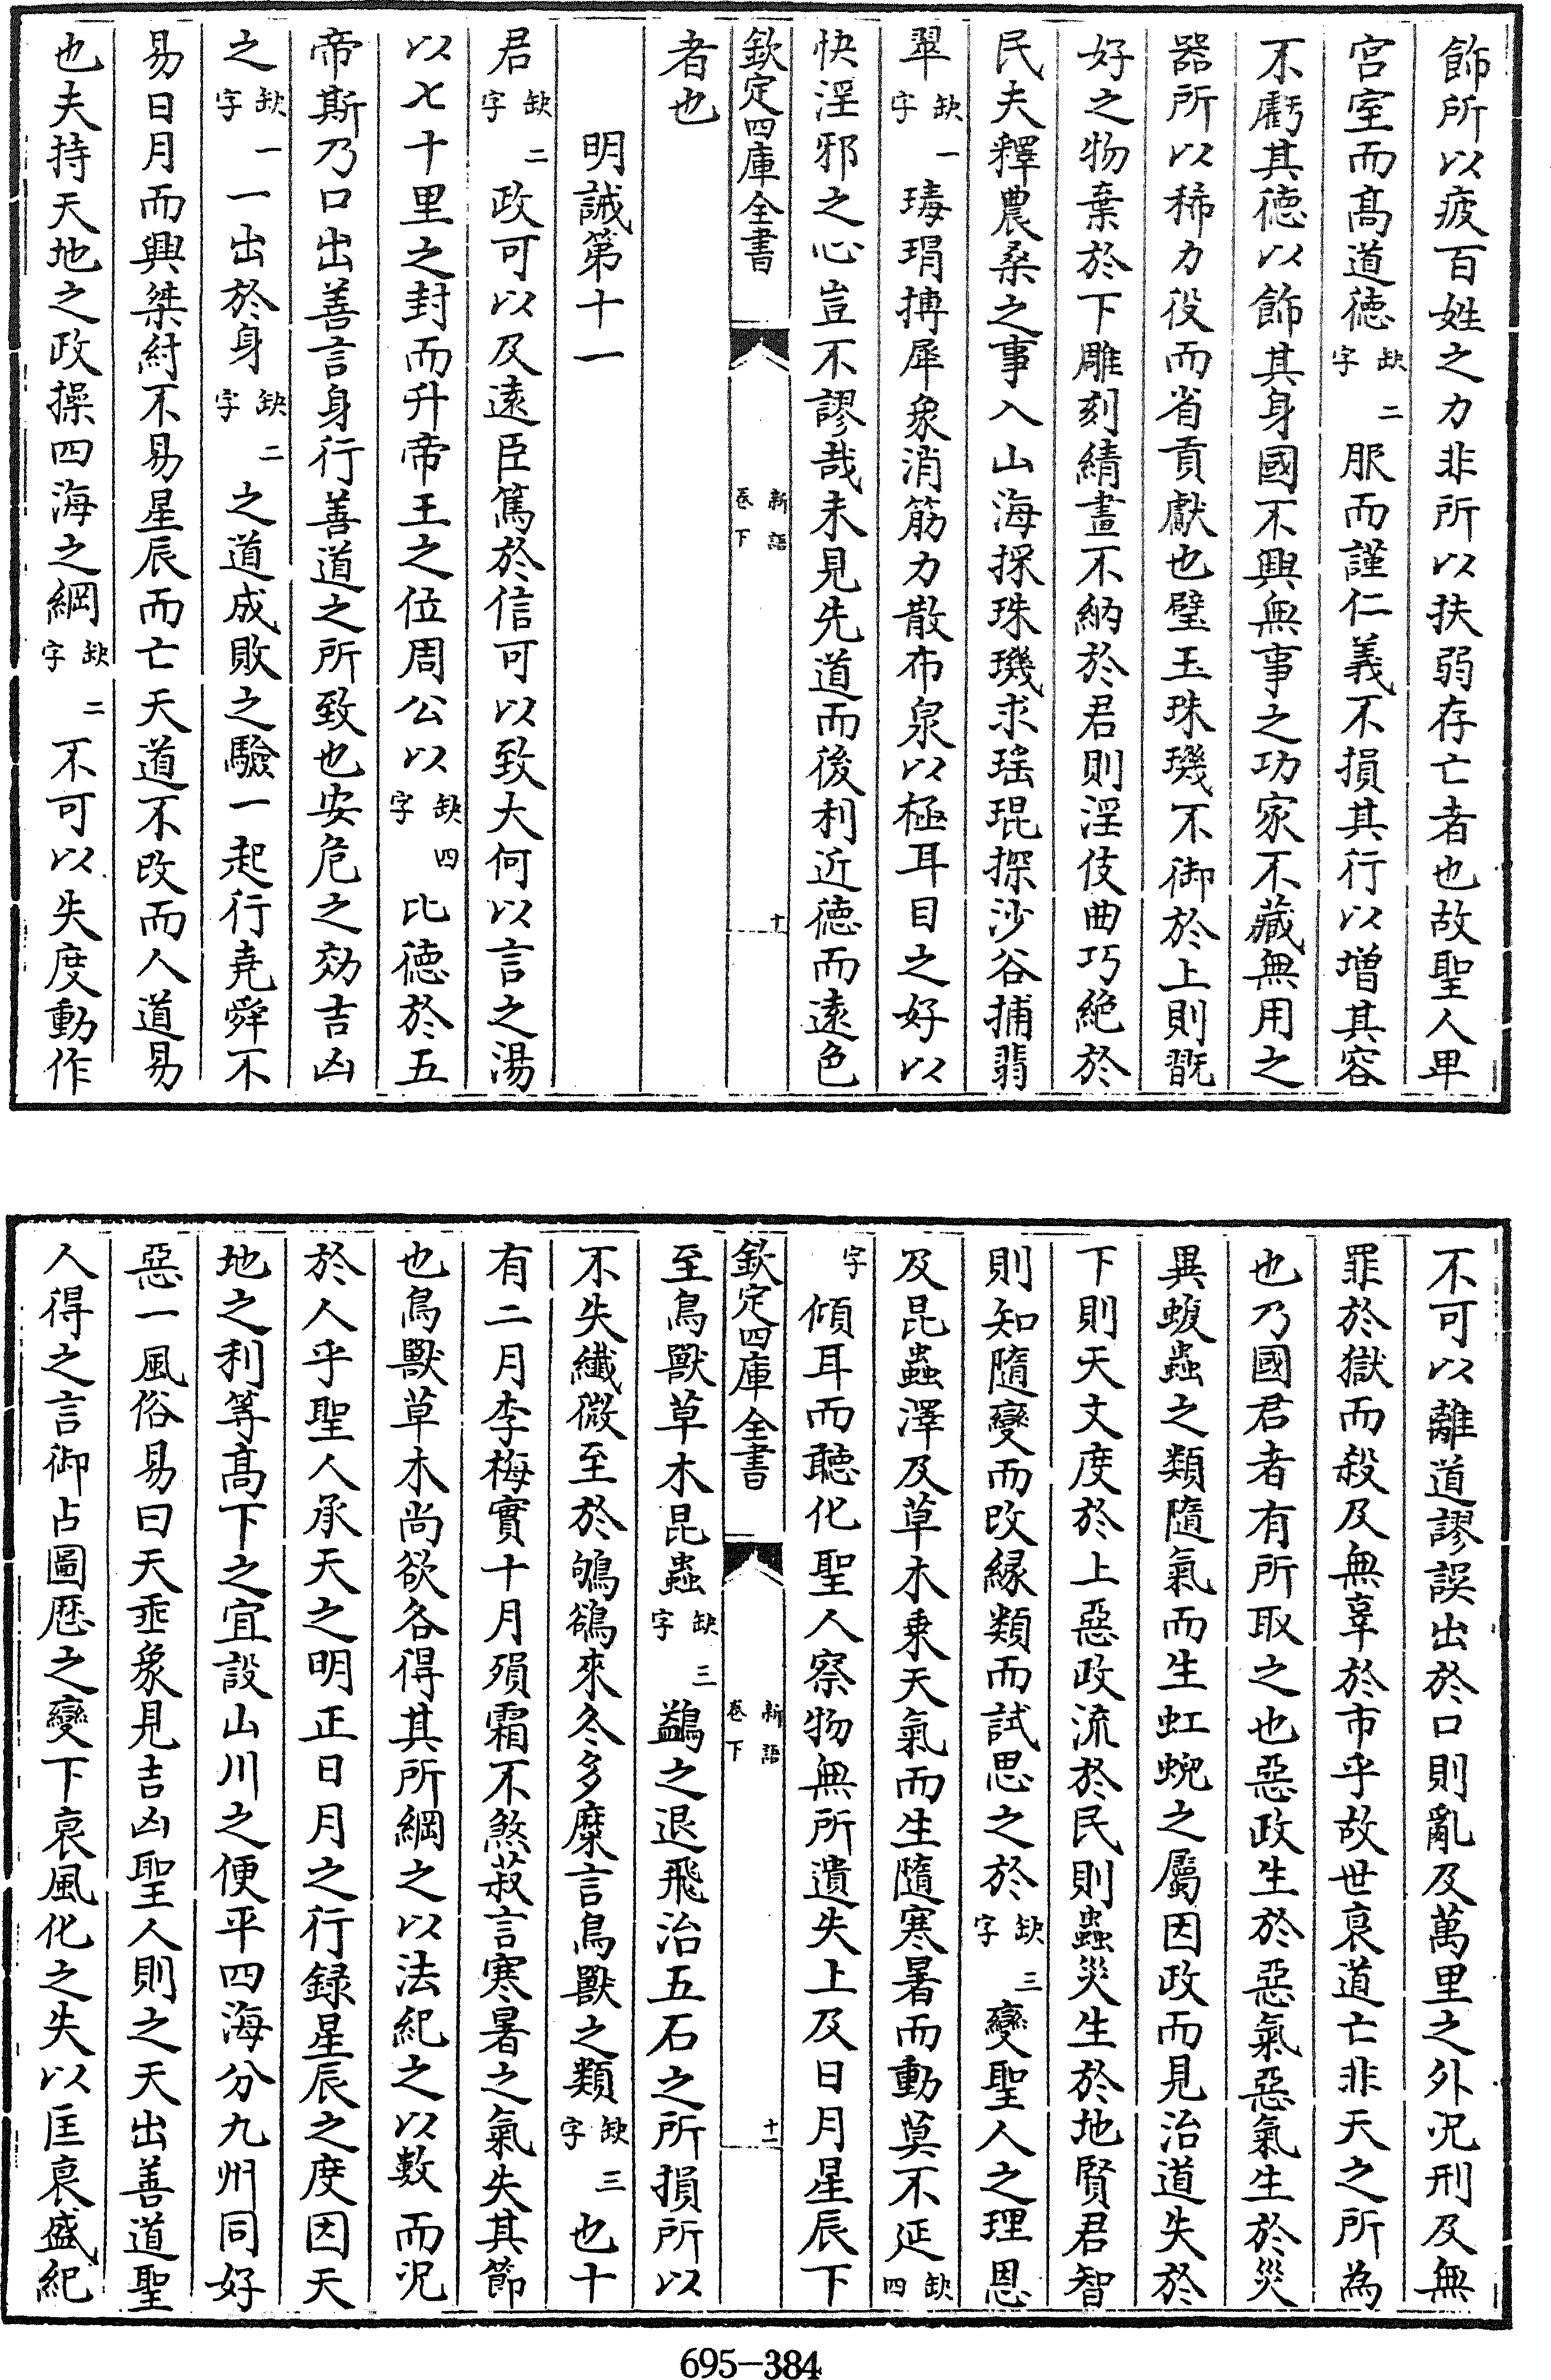 飾所以疲百姓之力非所以扶弱存亡者也故聖人卑
宫室而髙道徳缺二字服而謹仁義不損其行以增其容
不虧其徳以飾其身國不興無事之功家不藏無用之
器所以稀力役而省貢獻也璧玉珠璣不御於上則翫
好之物棄於下雕刻績畫不納於君則淫伎曲巧絶於
民夫釋農桑之事入山海採珠璣求瑶琨探沙谷捕翡
翠缺一字瑇瑁搏犀象消筋力散布泉以極耳目之好以
快淫邪之心豈不謬哉未見先道而後利近徳而遠色
欽定四庫全書 新語 卷下 十
者也
明誡第十一
君缺二字政可以及遠臣篤於信可以致大何以言之湯
以七十里之封而升帝王之位周公以缺四字比徳於五
帝斯乃口出善言身行善道之所致也安危之効吉凶
之缺一字一出於身缺二字之道成敗之驗一起行堯舜不
易日月而興桀紂不易星辰而亡天道不改而人道易
也夫持天地之政操四海之綱缺二字不可以失度動作
不可以離道謬誤出於口則亂及萬里之外况刑及無
罪於獄而殺及無辜於市乎故世衰道亡非天之所為
也乃國君者有所取之也惡政生於惡氣惡氣生於災
異蝮蟲之類隨氣而生虹蜺之屬因政而見治道失於
下則天文度於上惡政流於民則蟲災生於地賢君智
則知隨變而改緣類而試思之於缺三字變聖人之理恩
及昆蟲澤及草木乗天氣而生隨寒暑而動莫不延缺四
字傾耳而聽化聖人察物無所遺失上及日月星辰下
欽定四庫全書 新語 卷下 十一
至鳥獸草木昆蟲缺三字鷁之退飛治五石之所損所以
不失纎微至於鴝鵒來冬多麋言鳥獸之類缺三字也十
有二月李梅實十月殞霜不煞菽言寒暑之氣失其節
也鳥獸草木尚欲各得其所綱之以法紀之以數而况
於人乎聖人承天之明正日月之行録星辰之度因天
地之利等髙下之宜設山川之便平四海分九州同好
惡一風俗易曰天垂象見吉凶聖人則之天出善道聖
人得之言御占圖厯之變下衰風化之失以匡衰盛紀
695-384